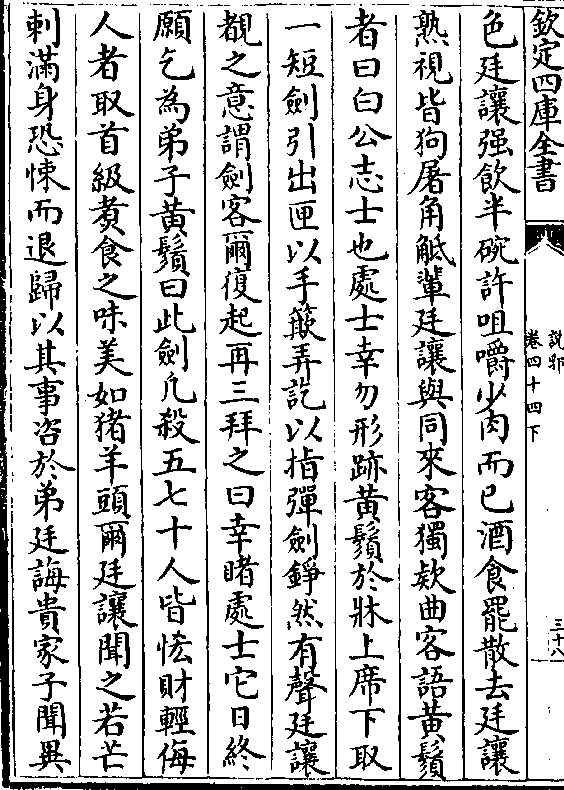 欽定四庫全書
說郛
卷四十四下
三十八
色廷讓强飲半碗許咀嚼少肉而已酒食罷散去廷讓
熟視皆狗屠角觝輩廷讓與同來客獨欵曲客語黃鬚
者曰白公志士也處士幸勿形跡黃鬚於牀上席下取
一短劍引出匣以手簸弄訖以指彈劍錚然有聲廷讓
覩之意謂劍客爾復起再三拜之曰幸睹處士它日終
願乞為弟子黃鬚曰此劍凡殺五七十人皆恡財輕侮
人者取首級煑食之味美如猪羊頭爾廷讓聞之若芒
刺滿身恐悚而退歸以其事咨於弟廷誨貴家子聞異